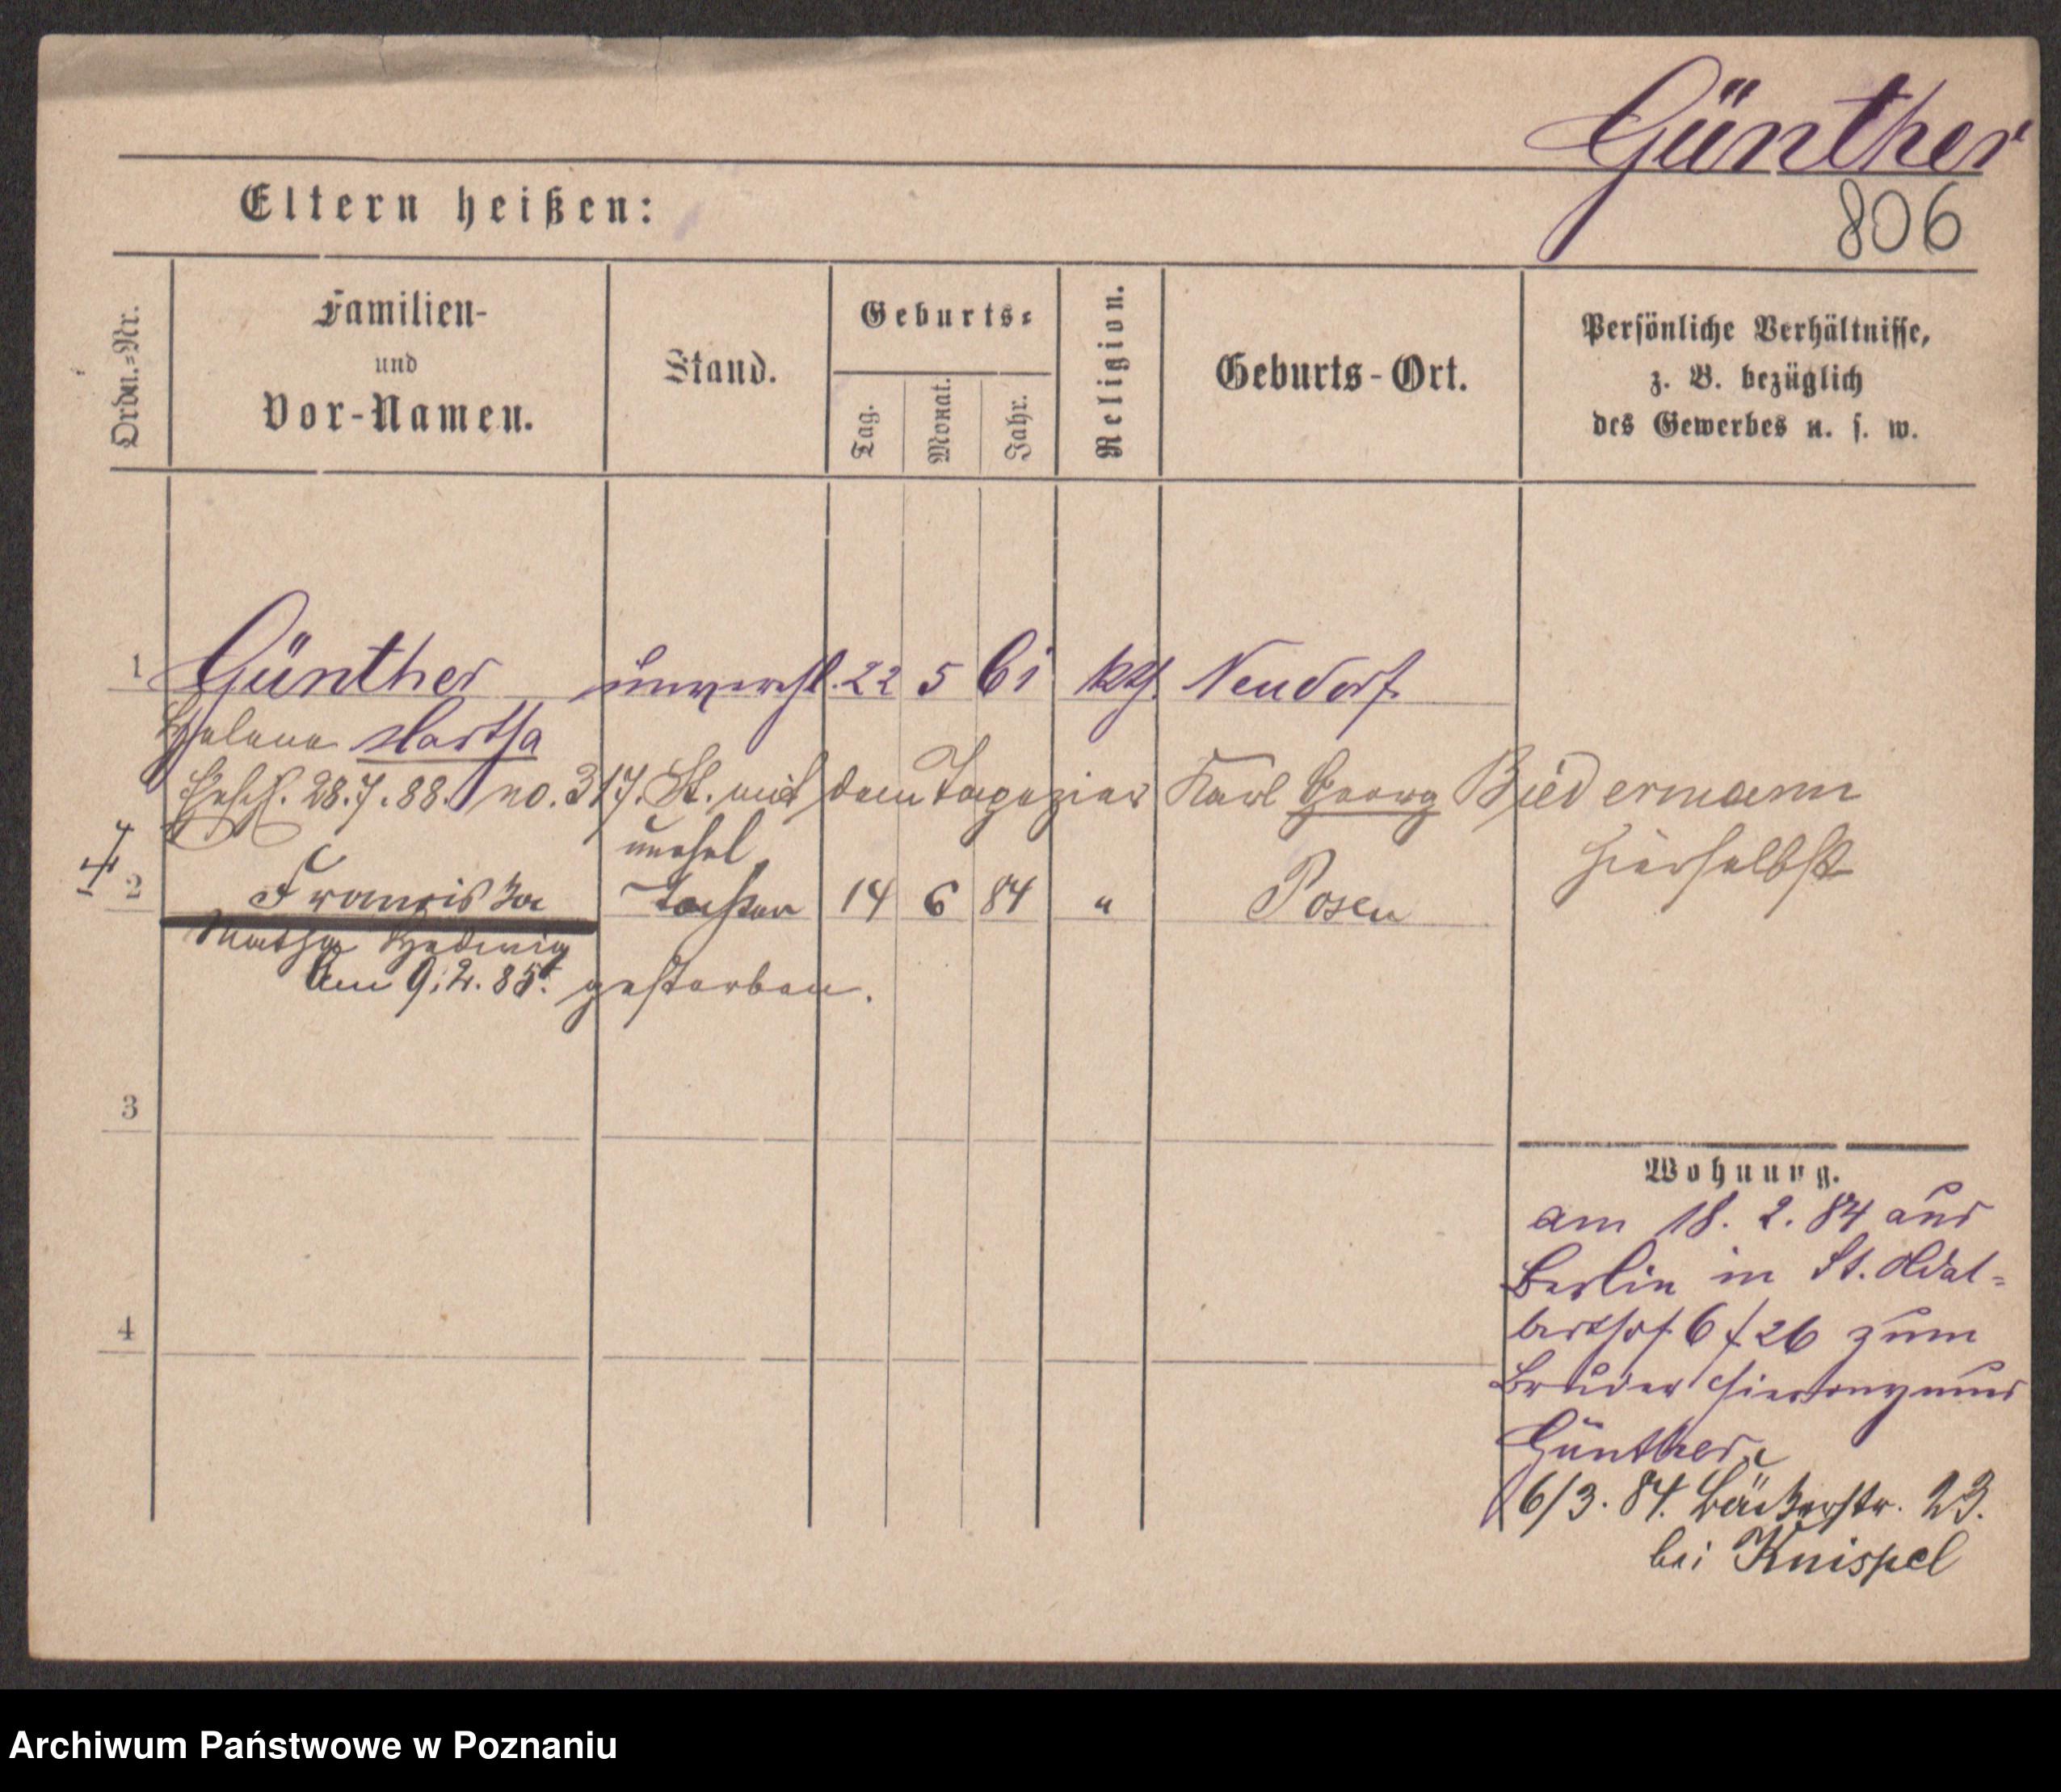 Günther
806
Eltern heißen:
Ordn.=Nr.
Familien-
und
Vor-Namen.
Stand.
Geburts=
Tag.
Monat.
Jahr.
Religion.
Geburts-Ort.
Persönliche Verhältnisse,
z. B. bezüglich
des Gewerbes u. s. w.
1 Günther unverehl. 22 5 61 kth. Neudorf
Helene Martha
Gesch. 28.7.88. no. 317. St. mit dem Tapezier Karl Georg Biedermann
hierselbst
unehel
2 Franziska Tochter 14 6 84 " Posen
Martha Hedwig
Am 9.2.85. gestorben.
3
4
Wohnung.
am 18. 2. 84 aus
Berlin in St. Adal-
berthof 6 / 26 zum
Bruder Hieronymus
Günther
6/3. 84. Bäckerstr. 23.
bei Knispel
Archiwum Państwowe w Poznaniu